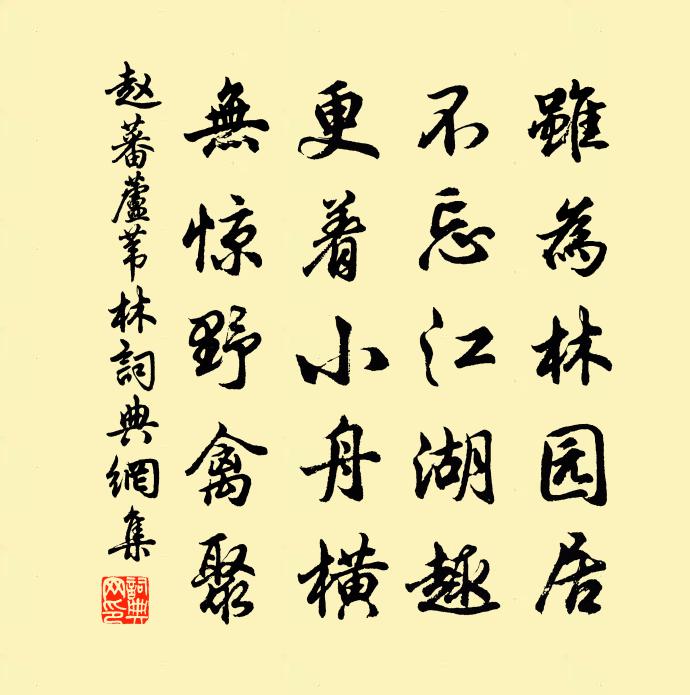 雖為林园居
不忘江湖趣
更着小舟橫
無惊野禽聚
赵蕃蘆苇林詞典網集
詞典网印